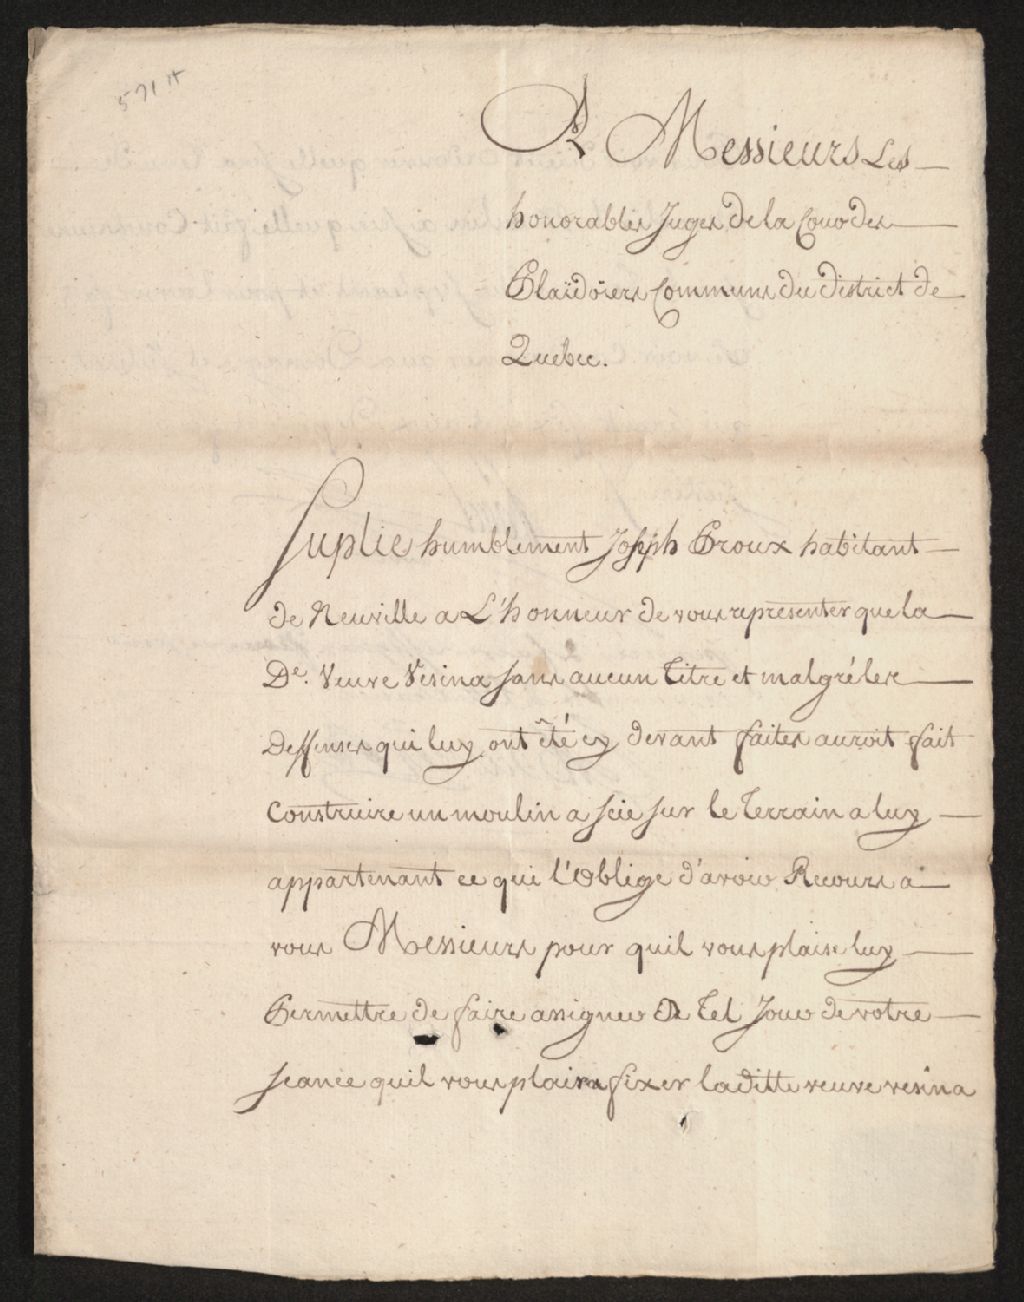 571 H
A Messieurs Les
honorables Juges de la Cour des
Plaidoiers Communs du District de
Quebec.
Suplie humblement Joseph Proux habitant
de Neuville a L'honneur de vous representer que la
De. Veuve Vesina sans aucun titre et malgré les
Deffenses qui luy ont été cy devant faites auroit fait
Construire un moulin a scie sur le terrain a luy
appartenant ce qui l'oblige d'avoir Recours a
vous Messieurs pour quil vous plaise luy
Permettre de faire assigner A tel Jour de votre
seance quil vous plaira fixer la ditte veuve vesina